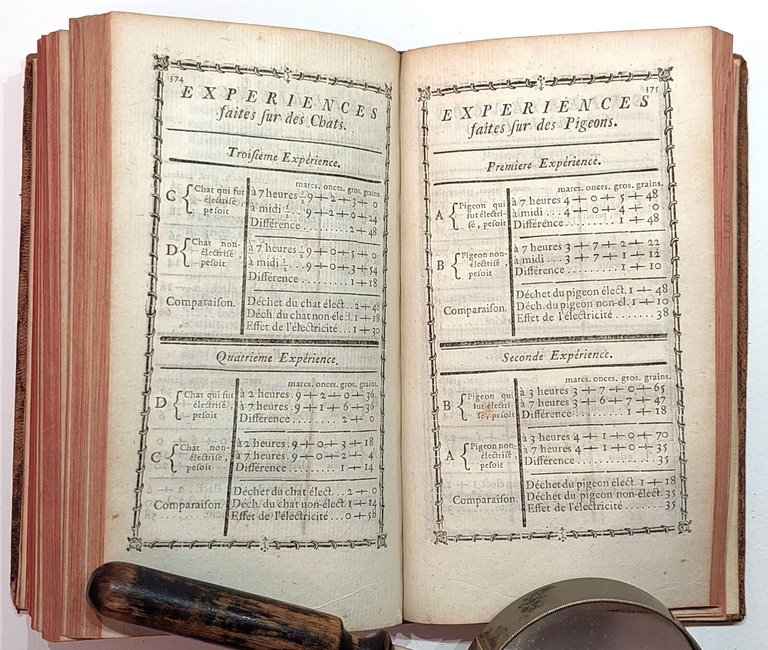 374
EXPERIENCES
faites ſur des Chats.
Troiſieme Expérience.
marcs. onces. gros. grains.
C { Chat qui fut électriſé, peſoit
à 7 heures ½ 9+2+3+0
à midi ½ .. 9+2+0+24
Différence ..... 2+48
D { Chat non-électriſé, peſoit
à 7 heures ½ 9+0+5+0
à midi ½ ... 9+0+3+54
Différence ....... 1+18
Comparaiſon.
Déchet du chat élect... 2+48
Déch. du chat non-élect. 1+18
Effet de l'électricité... 1+30
Quatrieme Expérience.
marcs. onces. gros. grains.
D { Chat qui fut électriſé, peſoit
à 2 heures. 9+2+0+36
à 7 heures. 9+1+6+36
Différence ....... 2+0
C { Chat non-électriſé, peſoit
à 2 heures. 9+0+3+18
à 7 heures. 9+0+2+4
Différence ....... 1+14
Comparaiſon.
Déchet du chat élect... 2+0
Déch. du chat non-élect 1+14
Effet de l'électricité... 0+58
375
EXPERIENCES
faites ſur des Pigeons.
Premiere Expérience.
marcs. onces. gros. grains.
A { Pigeon qui fut électriſé, peſoit
à 7 heures 4+0+5+48
à midi .... 4+0+4+0
Différence ........ 1+48
B { Pigeon non-électriſé, peſoit
à 7 heures 3+7+2+22
à midi .... 3+7+1+12
Différence ........ 1+10
Comparaiſon.
Déchet du pigeon élect. 1+48
Déch. du pigeon non-él. 1+10
Effet de l'électricité ....... 38
Seconde Expérience.
marcs. onces. gros. grains.
B { Pigeon qui fut électriſé, peſoit
à 3 heures 3+7+0+65
à 7 heures 3+6+7+47
Différence ........ 1+18
A { Pigeon non-électriſé, peſoit
à 3 heures 4+1+0+70
à 7 heures 4+1+0+35
Différence ............. 35
Comparaiſon.
Déchet du pigeon élect. 1+18
Déchet du pigeon non-élect. 35
Effet de l'électricité ........ 35